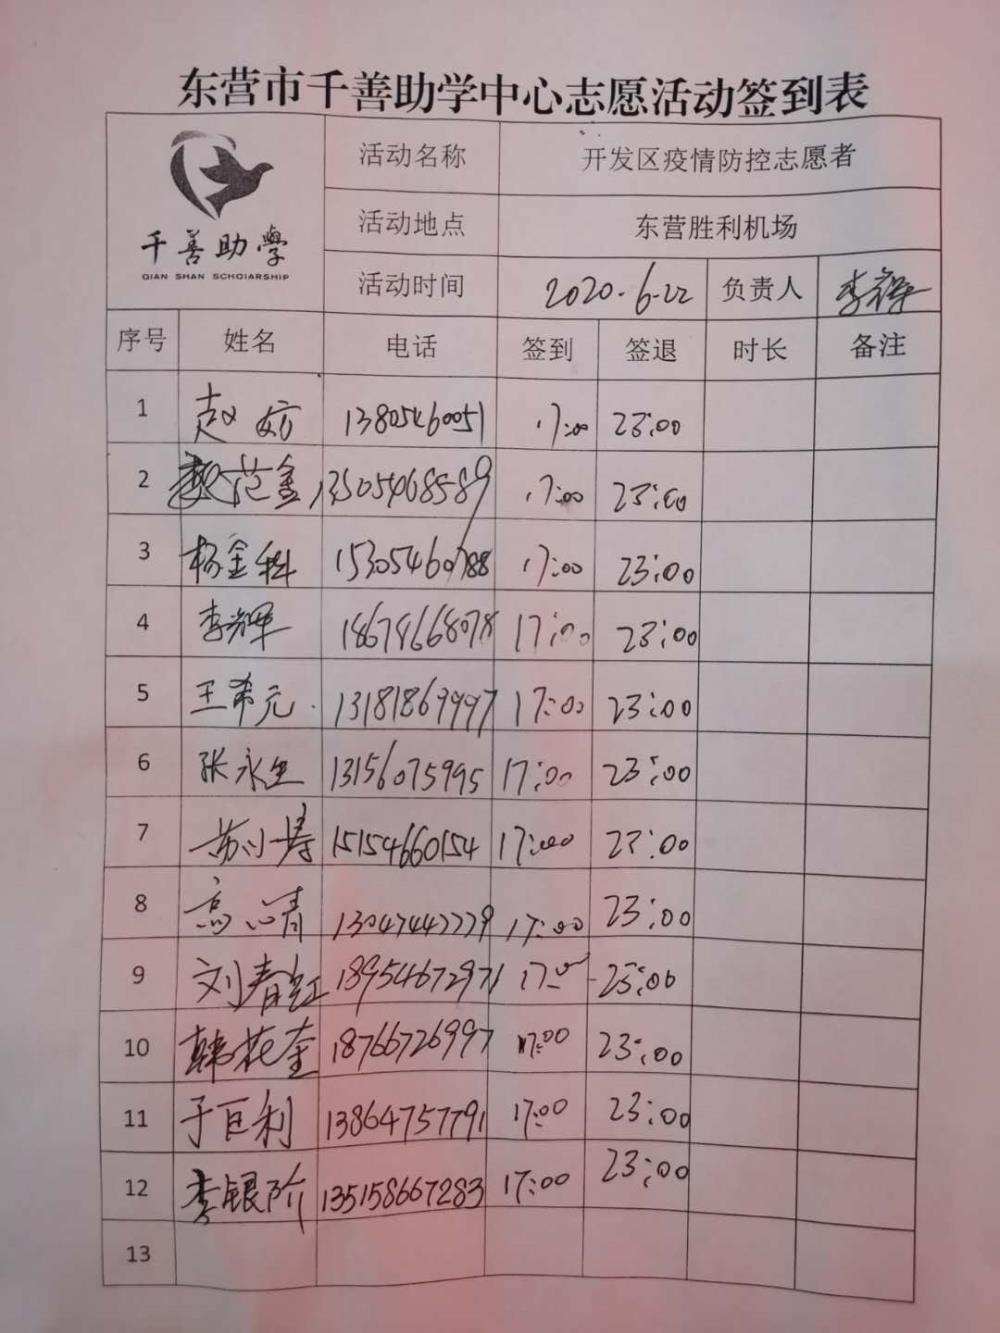 东营市千善助学中心志愿活动签到表
千善助學
QIAN SHAN SCHOIARSHIP
活动名称 开发区疫情防控志愿者
活动地点 东营胜利机场
活动时间 2020.6.22 负责人 李
序号 姓名 电话 签到 签退 时长 备注
1 赵 13805460051 17:00 23:00
2 范金 13505468589 17:00 23:00
3 杨金科 15305460788 17:00 23:00
4 李辉 17:00 23:00
5 王希元 13181869997 17:00 23:00
6 张永生 13156075995 17:00 23:00
7 苏小涛 15154660154 17:00 23:00
8 高心青 17:00 23:00
9 刘春红 18954672971 17:00 23:00
10 韩花奎 18766726997 17:00 23:00
11 于巨利 13864757791 17:00 23:00
12 李银阶 135158667283 17:00 23:00
13